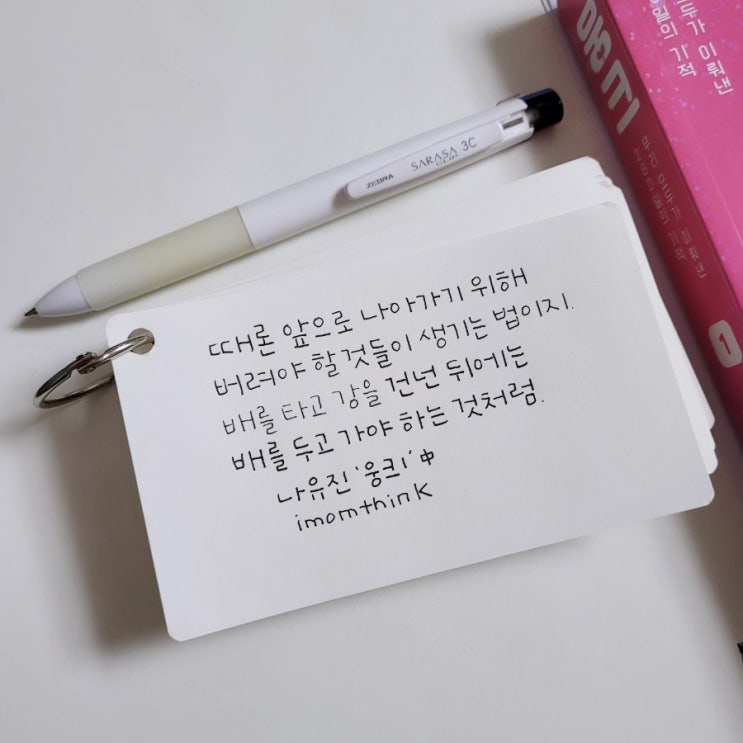 두가 이뤄낸
의 기적
웅크
1
ZEBRA
SARASA 3C
CLIP
때론 앞으로 나아가기 위해
버려야 할것들이 생기는 법이지.
배를 타고 강을 건넌 뒤에는
배를 두고 가야 하는 것처럼.
나유진 '웅크1' 中
imomthink